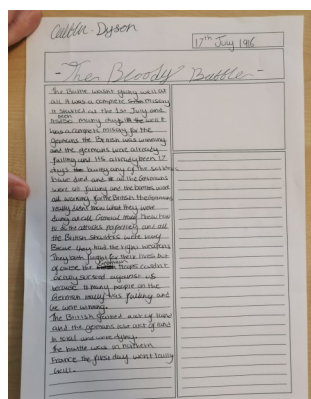 Caitlin. Dyson
17th July 1916
- The Bloody Battle -
The Battle wasnt going well at
all it was a complete misery
it started at the 1st July and
been many days it
been a complete misery for the
germans the British was winning
and the germans were already
falling and its already been 17
days many of the soldiers
have died and all the Germans
were all falling and the bombs were
all working for the British the Germans
really didn't know what they were
doing at all General Haig knew how
to do the attacks properly and all
the British soldiers were many
Because they had the right weapons
They both fought for their lives but
of course the German troops couldn't
really succeed against us
because to many people on the
German really was falling and
we were winning.
The British gained alot of land
and the germans lost alot of land
in total and were dying.
The battle was in northern
France The first day went really
well.